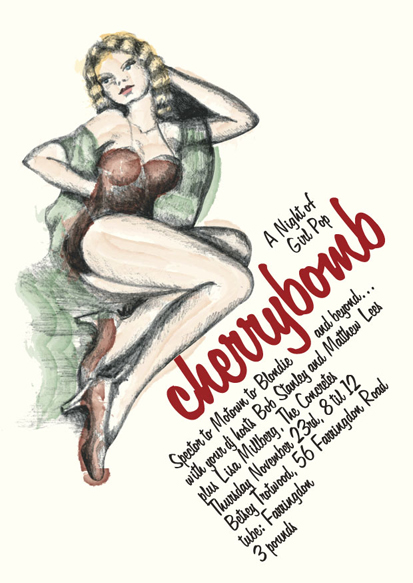 A Night of
Girl Pop
cherrybomb
Spector to Motown to Blondie and beyond...
with your dj hosts Bob Stanley and Matthew Lees
plus Lisa Milberg, The Concretes
Thursday November 23rd, 8 til 12
Betsey Trotwood, 56 Farringdon Road
tube: Farringdon
3 pounds